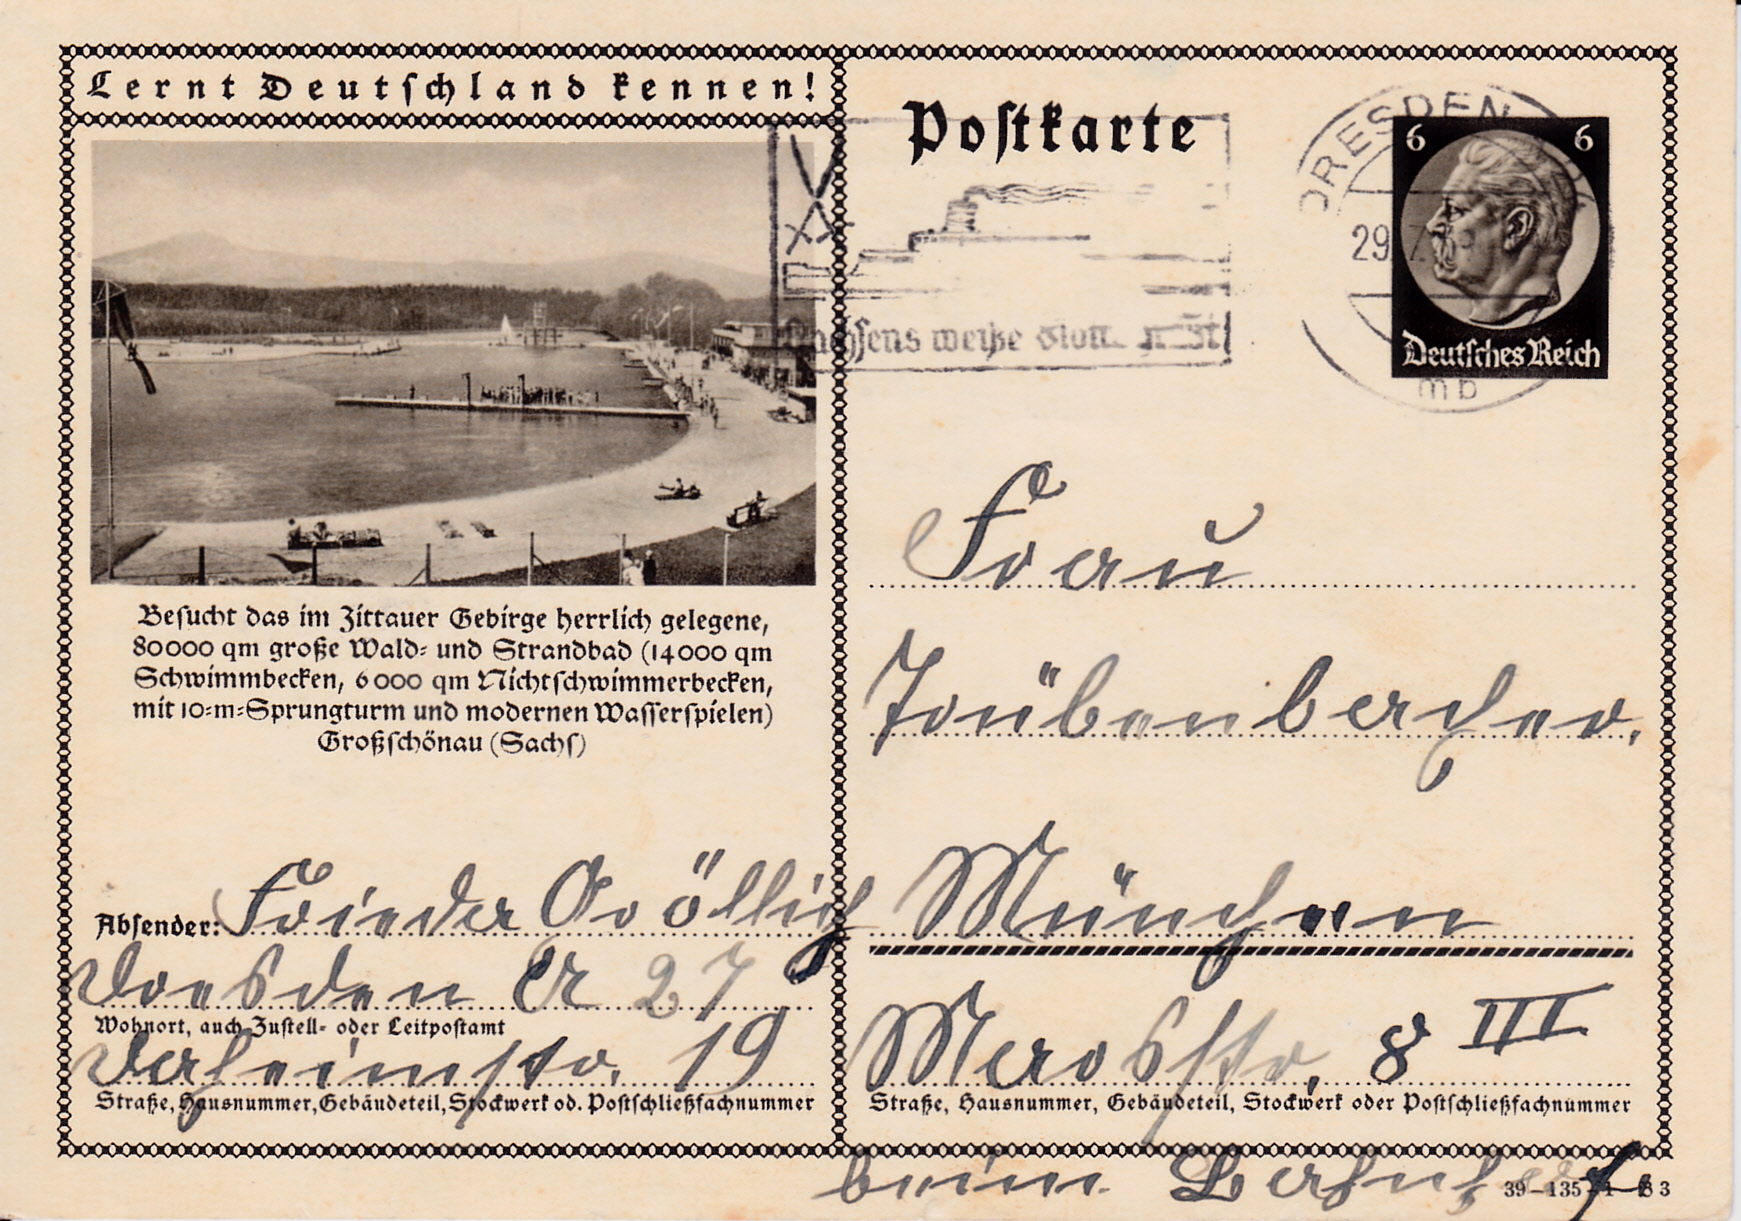 Lernt Deutschland kennen!
Besucht das im Zittauer Gebirge herrlich gelegene,
80000 qm große Wald- und Strandbad (14000 qm
Schwimmbecken, 6000 qm Nichtschwimmerbecken,
mit 10-m-Sprungturm und modernen Wasserspielen)
Großschönau (Sachs)
Absender: Frieda Gröllig
Dresden A 27
Wohnort, auch Zustell- oder Leitpostamt
19
Straße, Hausnummer, Gebäudeteil, Stockwerk od. Postschließfachnummer
Postkarte
DRESDEN
29.7.
mb
Sachsens weiße
6 6
Deutsches Reich
Frau
Trübenbacher.
München
Marsstr. 8 III
Straße, Hausnummer, Gebäudeteil, Stockwerk oder Postschließfachnummer
beim Bahnhof.
39-135-1-B3